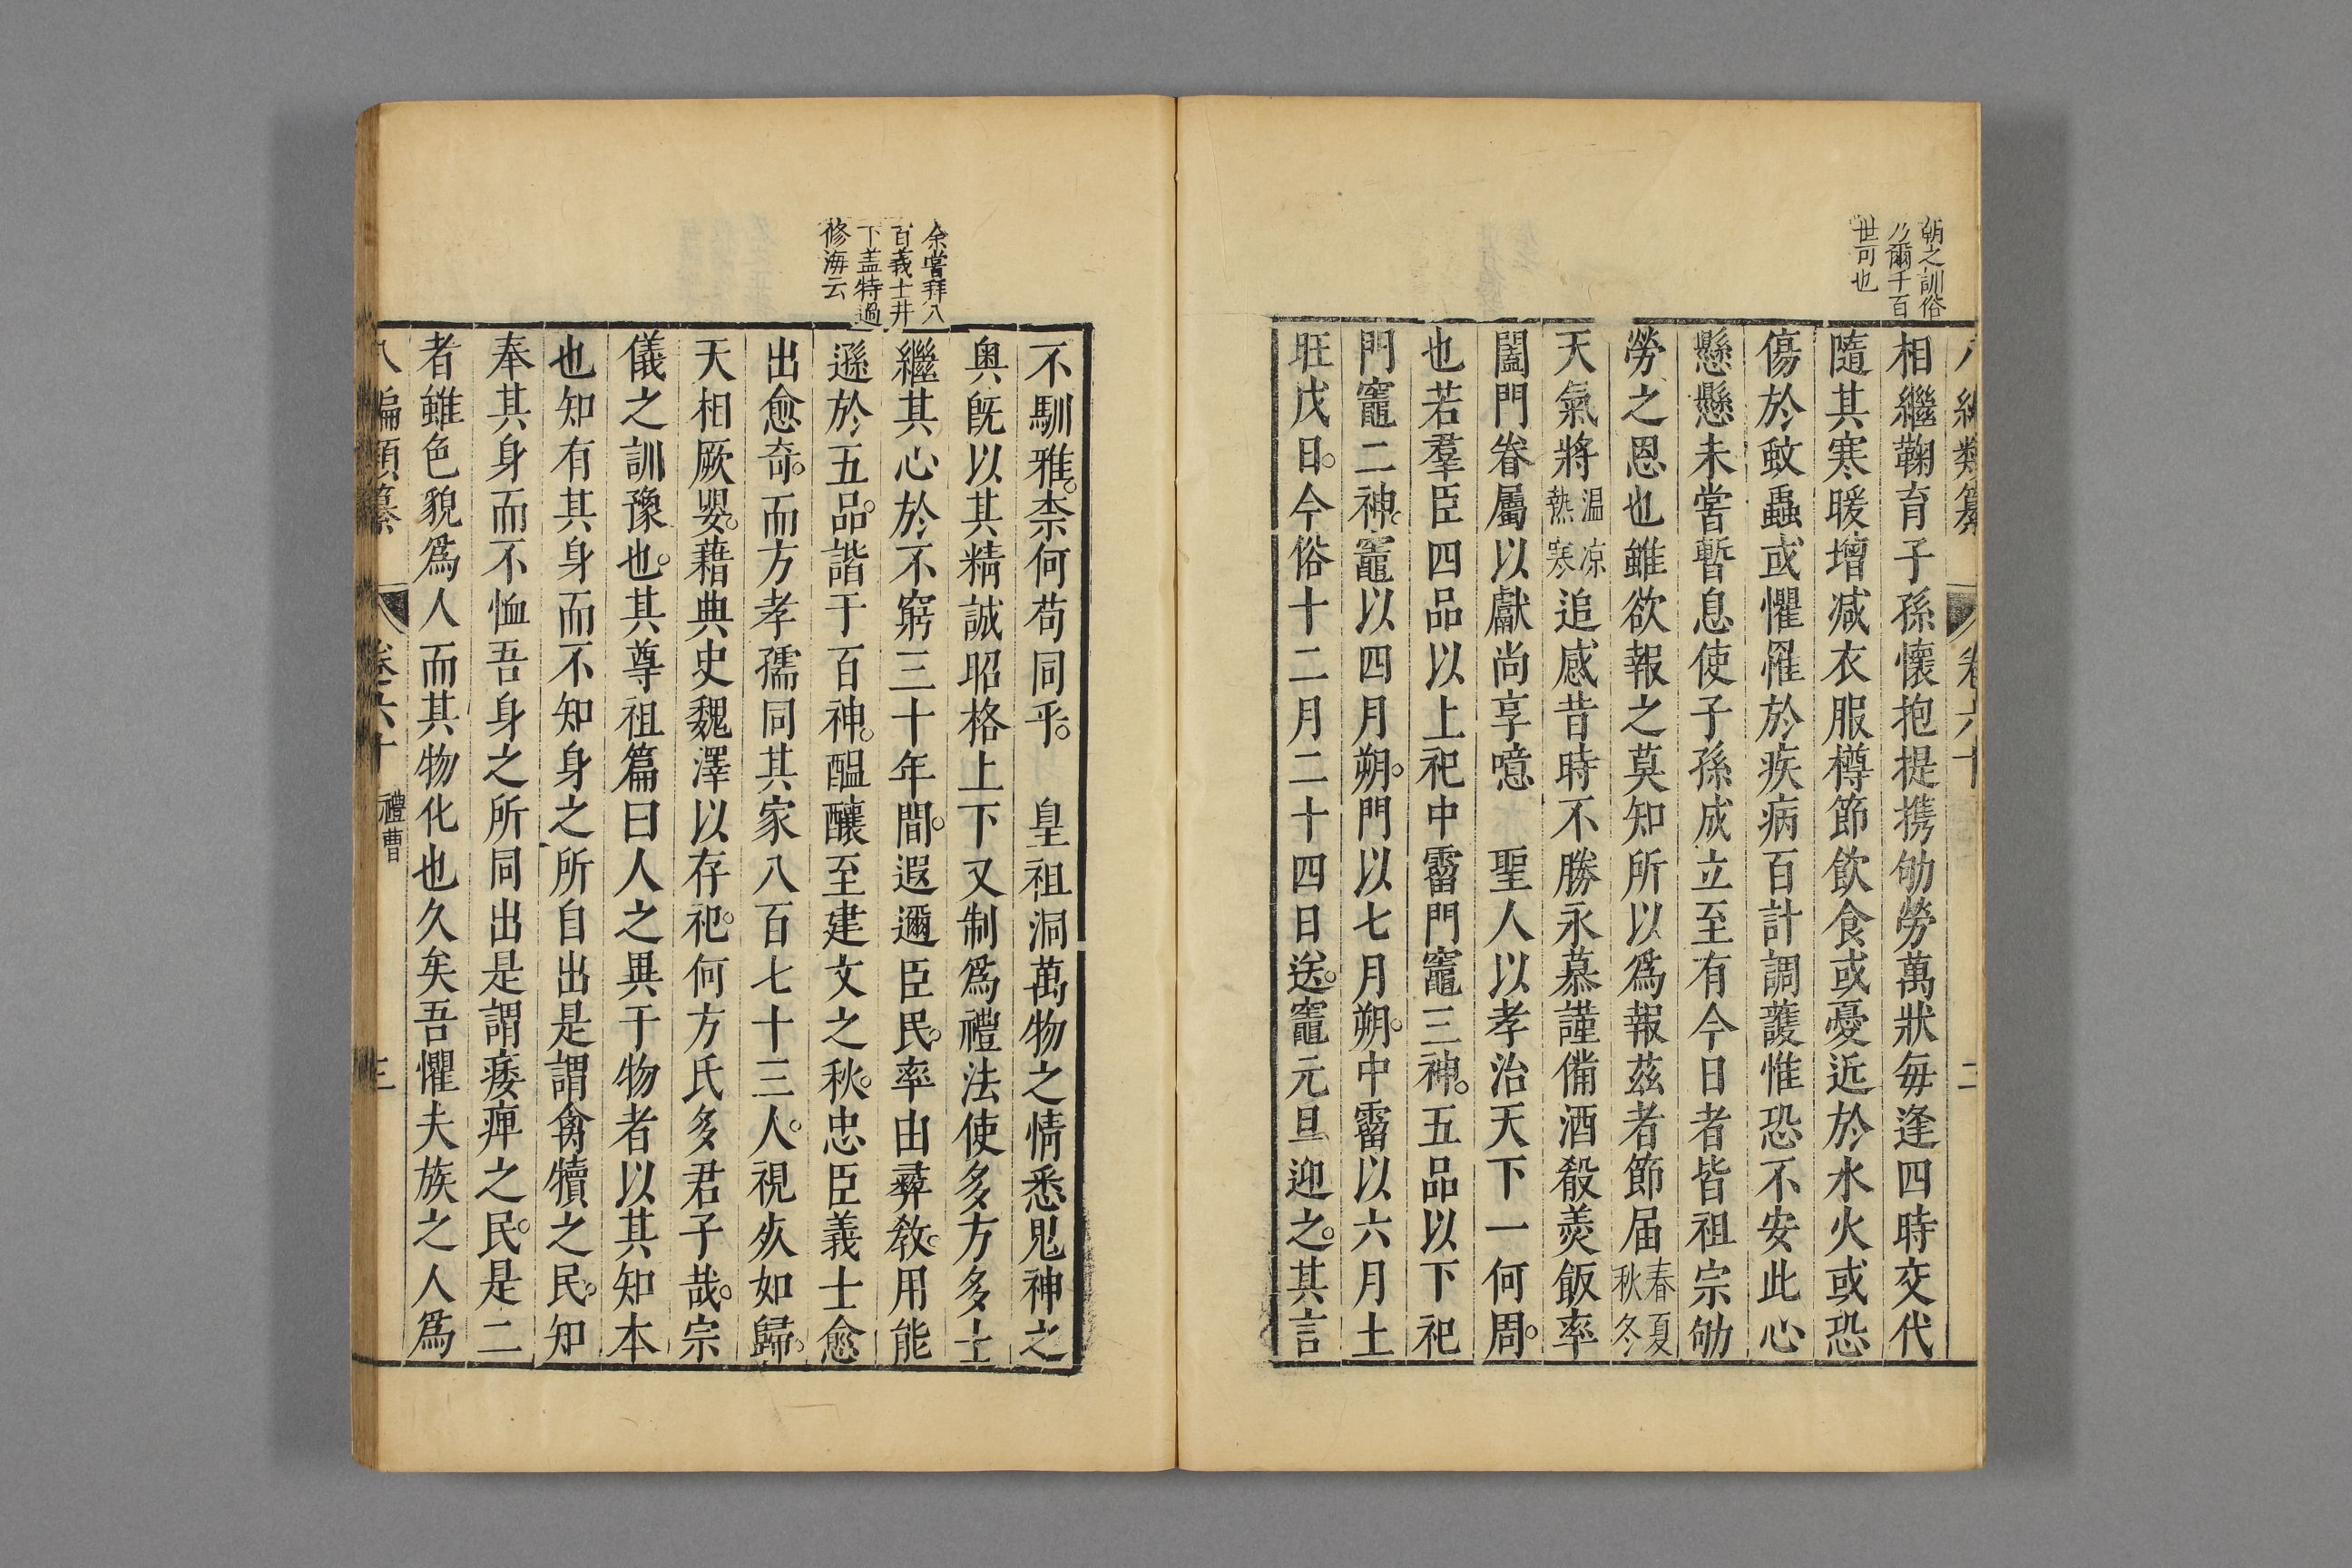 朝之訓俗
乃爾千百
世可也
八編類纂 卷六十 二
相繼鞠育子孫懷抱提携劬勞萬狀每逢四時交代
隨其寒暖增減衣服樽節飲食或憂近於水火或恐
傷於蚊蝨或懼罹於疾病百計調護惟恐不安此心
懸懸未嘗暫息使子孫成立至有今日者皆祖宗劬
勞之恩也雖欲報之莫知所以為報茲者節届春夏秋冬
天氣將温凉熱寒追感昔時不勝永慕謹備酒殽羮飯率
闔門眷屬以獻尚享噫 聖人以孝治天下一何周。
也若羣臣四品以上祀中霤門竈三神。五品以下祀
門竈二神。竈以四月朔。門以七月朔。中霤以六月土
旺戊日。今俗十二月二十四日送。竈元旦迎之。其言
余嘗拜八
百義士井
下盖特過
修海云
不馴雅。柰何苟同乎。 皇祖洞萬物之情悉鬼神之
奥旣以其精誠昭格上下又制為禮法使多方多士
繼其心於不窮三十年間。遐邇臣民。率由彛敎。用能
遜於五品。諧于百神。醖釀至建文之秋。忠臣義士愈
出愈奇。而方孝孺同其家八百七十三人。視死如歸。
天相厥嬰。藉典史魏澤以存祀。何方氏多君子哉。宗
儀之訓豫也。其尊祖篇曰人之異于物者以其知本
也知有其身而不知身之所自出是謂禽犢之民。知
奉其身而不恤吾身之所同出是謂痿痺之民。是二
者雖色貌為人而其物化也久矣吾懼夫族之人為
八編類纂 卷六十 禮曹 三